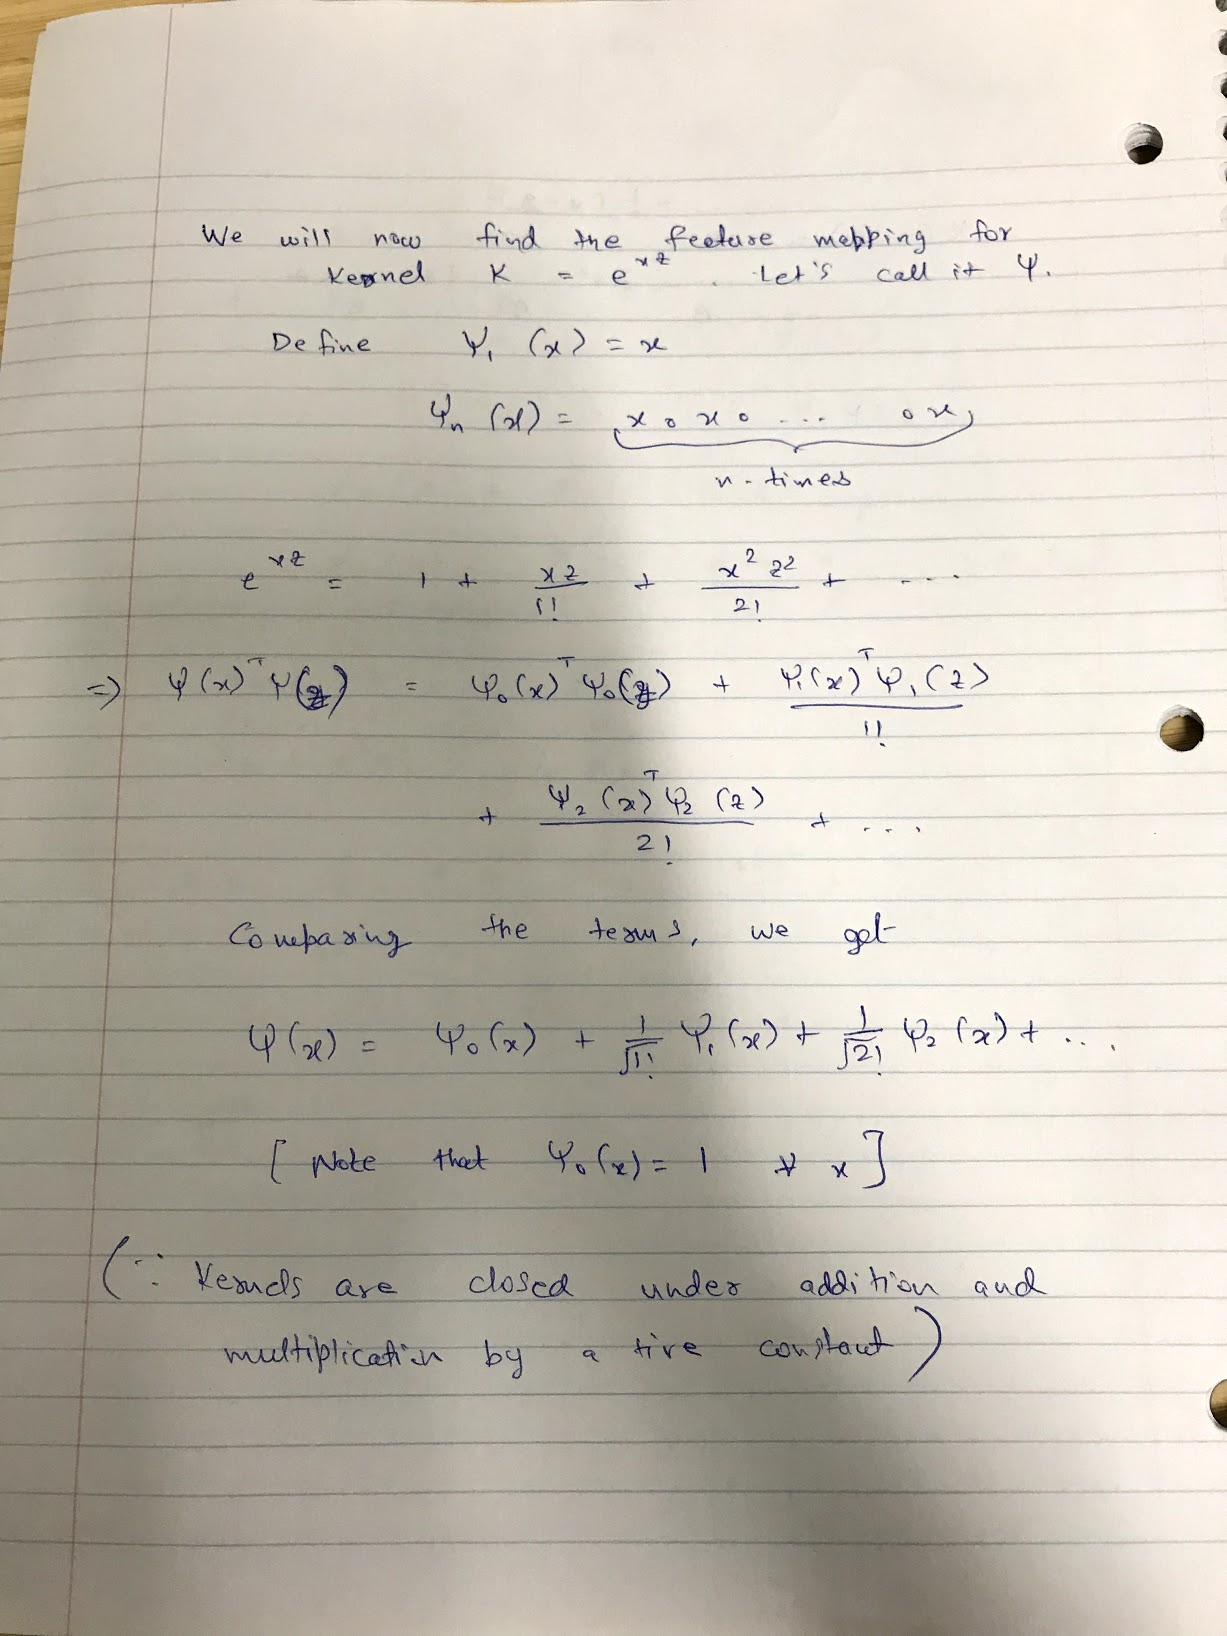 We will now find the feature mapping for
Kernel K = e^{xz}. Let's call it Ψ.
Define Ψ₁(x) = x
Ψₙ(x) = x ∘ x ∘ ... ∘ x
n-times
e^{xz} = 1 + xz/1! + x²z²/2! + ....
⇒ Ψ(x)ᵀΨ(z) = Ψ₀(x)ᵀΨ₀(z) + Ψ₁(x)ᵀΨ₁(z)/1!
+ Ψ₂(x)ᵀΨ₂(z)/2! + ....
Comparing the terms, we get
Ψ(x) = Ψ₀(x) + 1/√1! Ψ₁(x) + 1/√2! Ψ₂(x) + ....
[Note that Ψ₀(x) = 1 ∀ x]
(∵ Kernels are closed under addition and
multiplication by a +ive constant)